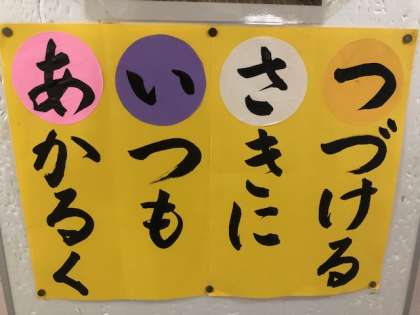 あかるく
いつも
さきに
つづける